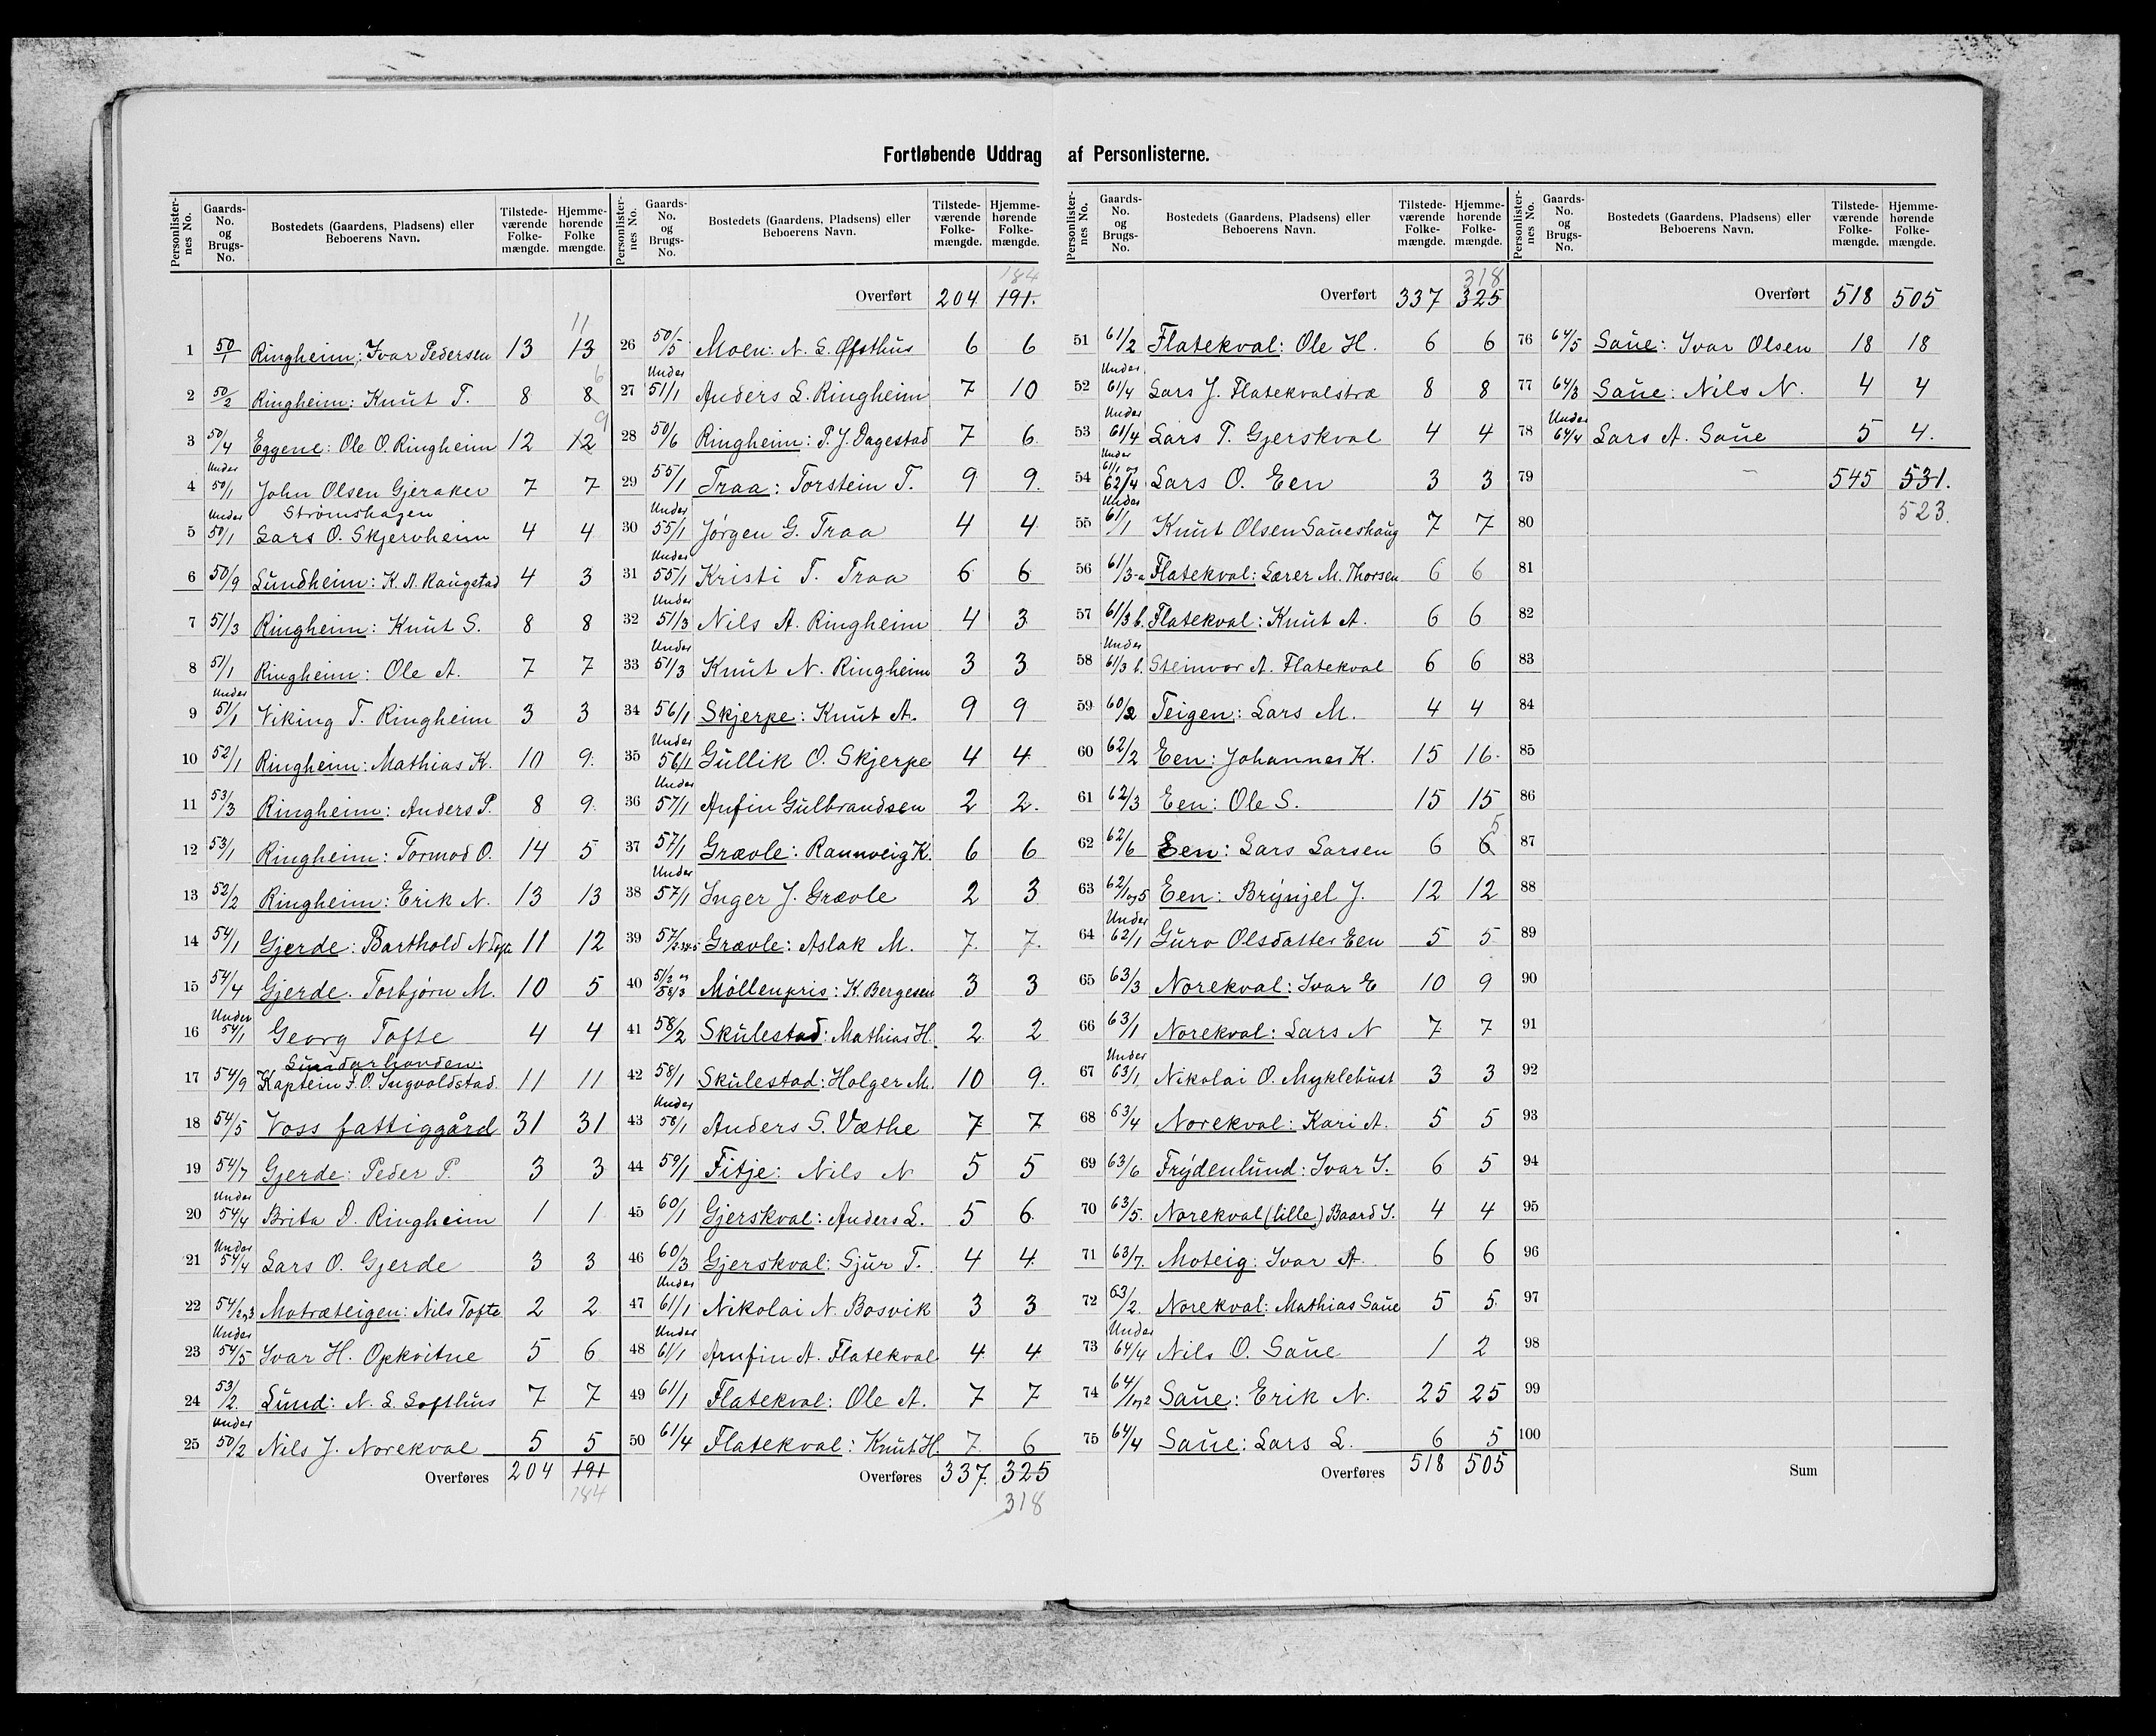 Fortløbende Uddrag af Personlisterne.
Personlister-nes No. | Gaards-No. og Brugs-No. | Bostedets (Gaardens, Pladsens) eller Beboerens Navn. | Tilstede-værende Folke-mængde. | Hjemme-hørende Folke mængde.
1 50/1 Ringheim: Ivar Pedersen 13 13 11
2 50/2 Ringheim: Knut T. 8 8 6
3 50/4 Eggene: Ole O. Ringheim 12 12 9
4 Under 50/1 John Olsen Gjeraker 7 7
Strømshagen
5 Under 50/1 Lars O. Skjervheim 4 4
6 50/9 Lundheim: K. A. Raugstad 4 3
7 51/3 Ringheim: Knut S. 8 8
8 51/1 Ringheim: Ole A. 7 7
9 Under 51/1 Viking T. Ringheim 3 3
10 52/1 Ringheim: Mathias K. 10 9.
11 53/3 Ringheim: Anders P. 8 9.
12 53/1 Ringheim: Tormod O. 14 5
13 52/2 Ringheim: Erik N. 13 13
14 54/1 Gjerde: Barthold N. 11 12
15 54/4 Gjerde. Torbjørn M. 10 5
16 Under 54/1 Georg Tofte 4 4
Sundarhovden:
17 54/9 Kaptein F. O. Ingvoldstad. 11 11
18 54/5 Voss fattiggård 31 31
19 54/7 Gjerde: Peder P. 3 3
20 Under 54/4 Brita D. Ringheim 1 1
21 Under 54/4 Lars O. Gjerde 3 3
22 54/2og3 Motræteigen: Nils Tofte 2 2
23 Under 54/5 Ivar H. Opkvitne 5 6
24 53/2. Lund: N. L. Lofthus 7 7
25 Under 50/2 Nils J. Norekval 5 5
Overføres 204 191
184
Personlister-nes No. | Gaards-No. og Brugs-No. | Bostedets (Gaardens, Pladsens) eller Beboerens Navn. | Tilstede-værende Folke-mængde. | Hjemme-hørende Folke-mængde.
184
Overført 204 191.
26 50/5 Moen: N. L. Øfsthus 6 6
27 Under 51/1 Anders L. Ringheim 7 10
28 50/6 Ringheim: P. J. Dagestad 7 6.
29 55/1 Traa: Torstein T. 9 9.
30 Under 55/1 Jørgen G. Traa 4 4
31 Under 55/1 Kristi T. Traa 6 6
32 Under 51/3 Nils A. Ringheim 4 3
33 Under 51/3 Knut N. Ringheim 3 3
34 56/1 Skjerpe: Knut A. 9 9
35 Under 56/1 Gullik O. Skjerpe 4 4
36 Under 57/1 Anfin Gulbrandsen 2 2.
37 57/1 Grævle: Rannveig K. 6 6
38 Under 57/1 Inger J. Grævle 2 3
39 57/ Grævle: Aslak M. 7. 7.
40 Møllenpris: K. Bergesen 3 3
41 58/2 Skulestad: Mathias H. 2 2
42 58/1 Skulestad: Holger M. 10 9.
43 Under 58/1 Anders S. Væthe 7 7
44 59/1 Fitje: Nils N 5 5
45 60/1 Gjerskval: Anders L. 5 6
46 60/3 Gjerskval: Sjur T. 4 4
47 Under 61/1 Nikolai N. Bosvik 3 3
48 Under 61/1 Anfin A. Flatekval 4 4
49 61/1 Flatekval: Ole A. 7 7
50 61/4 Flatekval: Knut H. 7. 6
Overføres 337 325
318
Personlister-nes No. | Gaards-No. og Brugs-No. | Bostedets (Gaardens, Pladsens) eller Beboerens Navn. | Tilstede-værende Folke-mængde. | Hjemme-hørende Folke-mængde.
318
Overført 337 325
51 61/2 Flatekval: Ole H. 6 6
52 Under 61/4 Lars J. Flatekvalstræ 8 8
53 Under 61/4 Lars T. Gjerskval 4 4
54 Under 61/1 og 62/4 Lars O. Een 3 3
55 Under 61/1 Knut Olsen Saueshaug 7 7
56 61/3-a Flatekval: Lærer M. Thorsen 6 6
57 61/3 b. Flatekval: Knut A. 6 6
58 Under 61/3 b. Steinvor A. Flatekval 6 6
59 60/2 Teigen: Lars M. 4 4
60 62/2 Een: Johannes K. 15 16.
61 62/3 Een: Ole S. 15 15
62 62/6 Een: Lars Larsen 6 6 5
63 62/1og5 Een: Brynjel J. 12 12
64 Under 62/1 Guro Olsdatter Een 5 5
65 63/3 Norekval: Ivar E 10 9
66 63/1 Norekval: Lars N 7 7
67 Under 63/1 Nikolai O. Myklebust 3 3
68 63/4 Norekval: Kari A. 5 5
69 63/6 Frydenlund: Ivar I. 6 5
70 63/5. Norekval (lille) Baard I. 4 4
71 63/7. Moteig: Ivar A. 6 6
72 63/2. Norekval: Mathias Saue 5 5
73 Under 64/4 Nils O. Saue 1 2
74 64/1og2 Saue: Erik N. 25 25
75 64/4 Saue: Lars L. 6 5
Overføres 518 505
Personlister-nes No. | Gaards-No. og Brugs-No. | Bostedets (Gaardens, Pladsens) eller Beboerens Navn. | Tilstede-værende Folke-mængde. | Hjemme-hørende Folke-mængde.
Overført 518 505
76 64/5 Saue: Ivar Olsen 18 18
77 64/3 Saue: Nils N. 4 4
78 Under 64/4 Lars A. Saue 5 4.
79 545 531.
80 523.
81
82
83
84
85
86
87
88
89
90
91
92
93
94
95
96
97
98
99
100
Sum